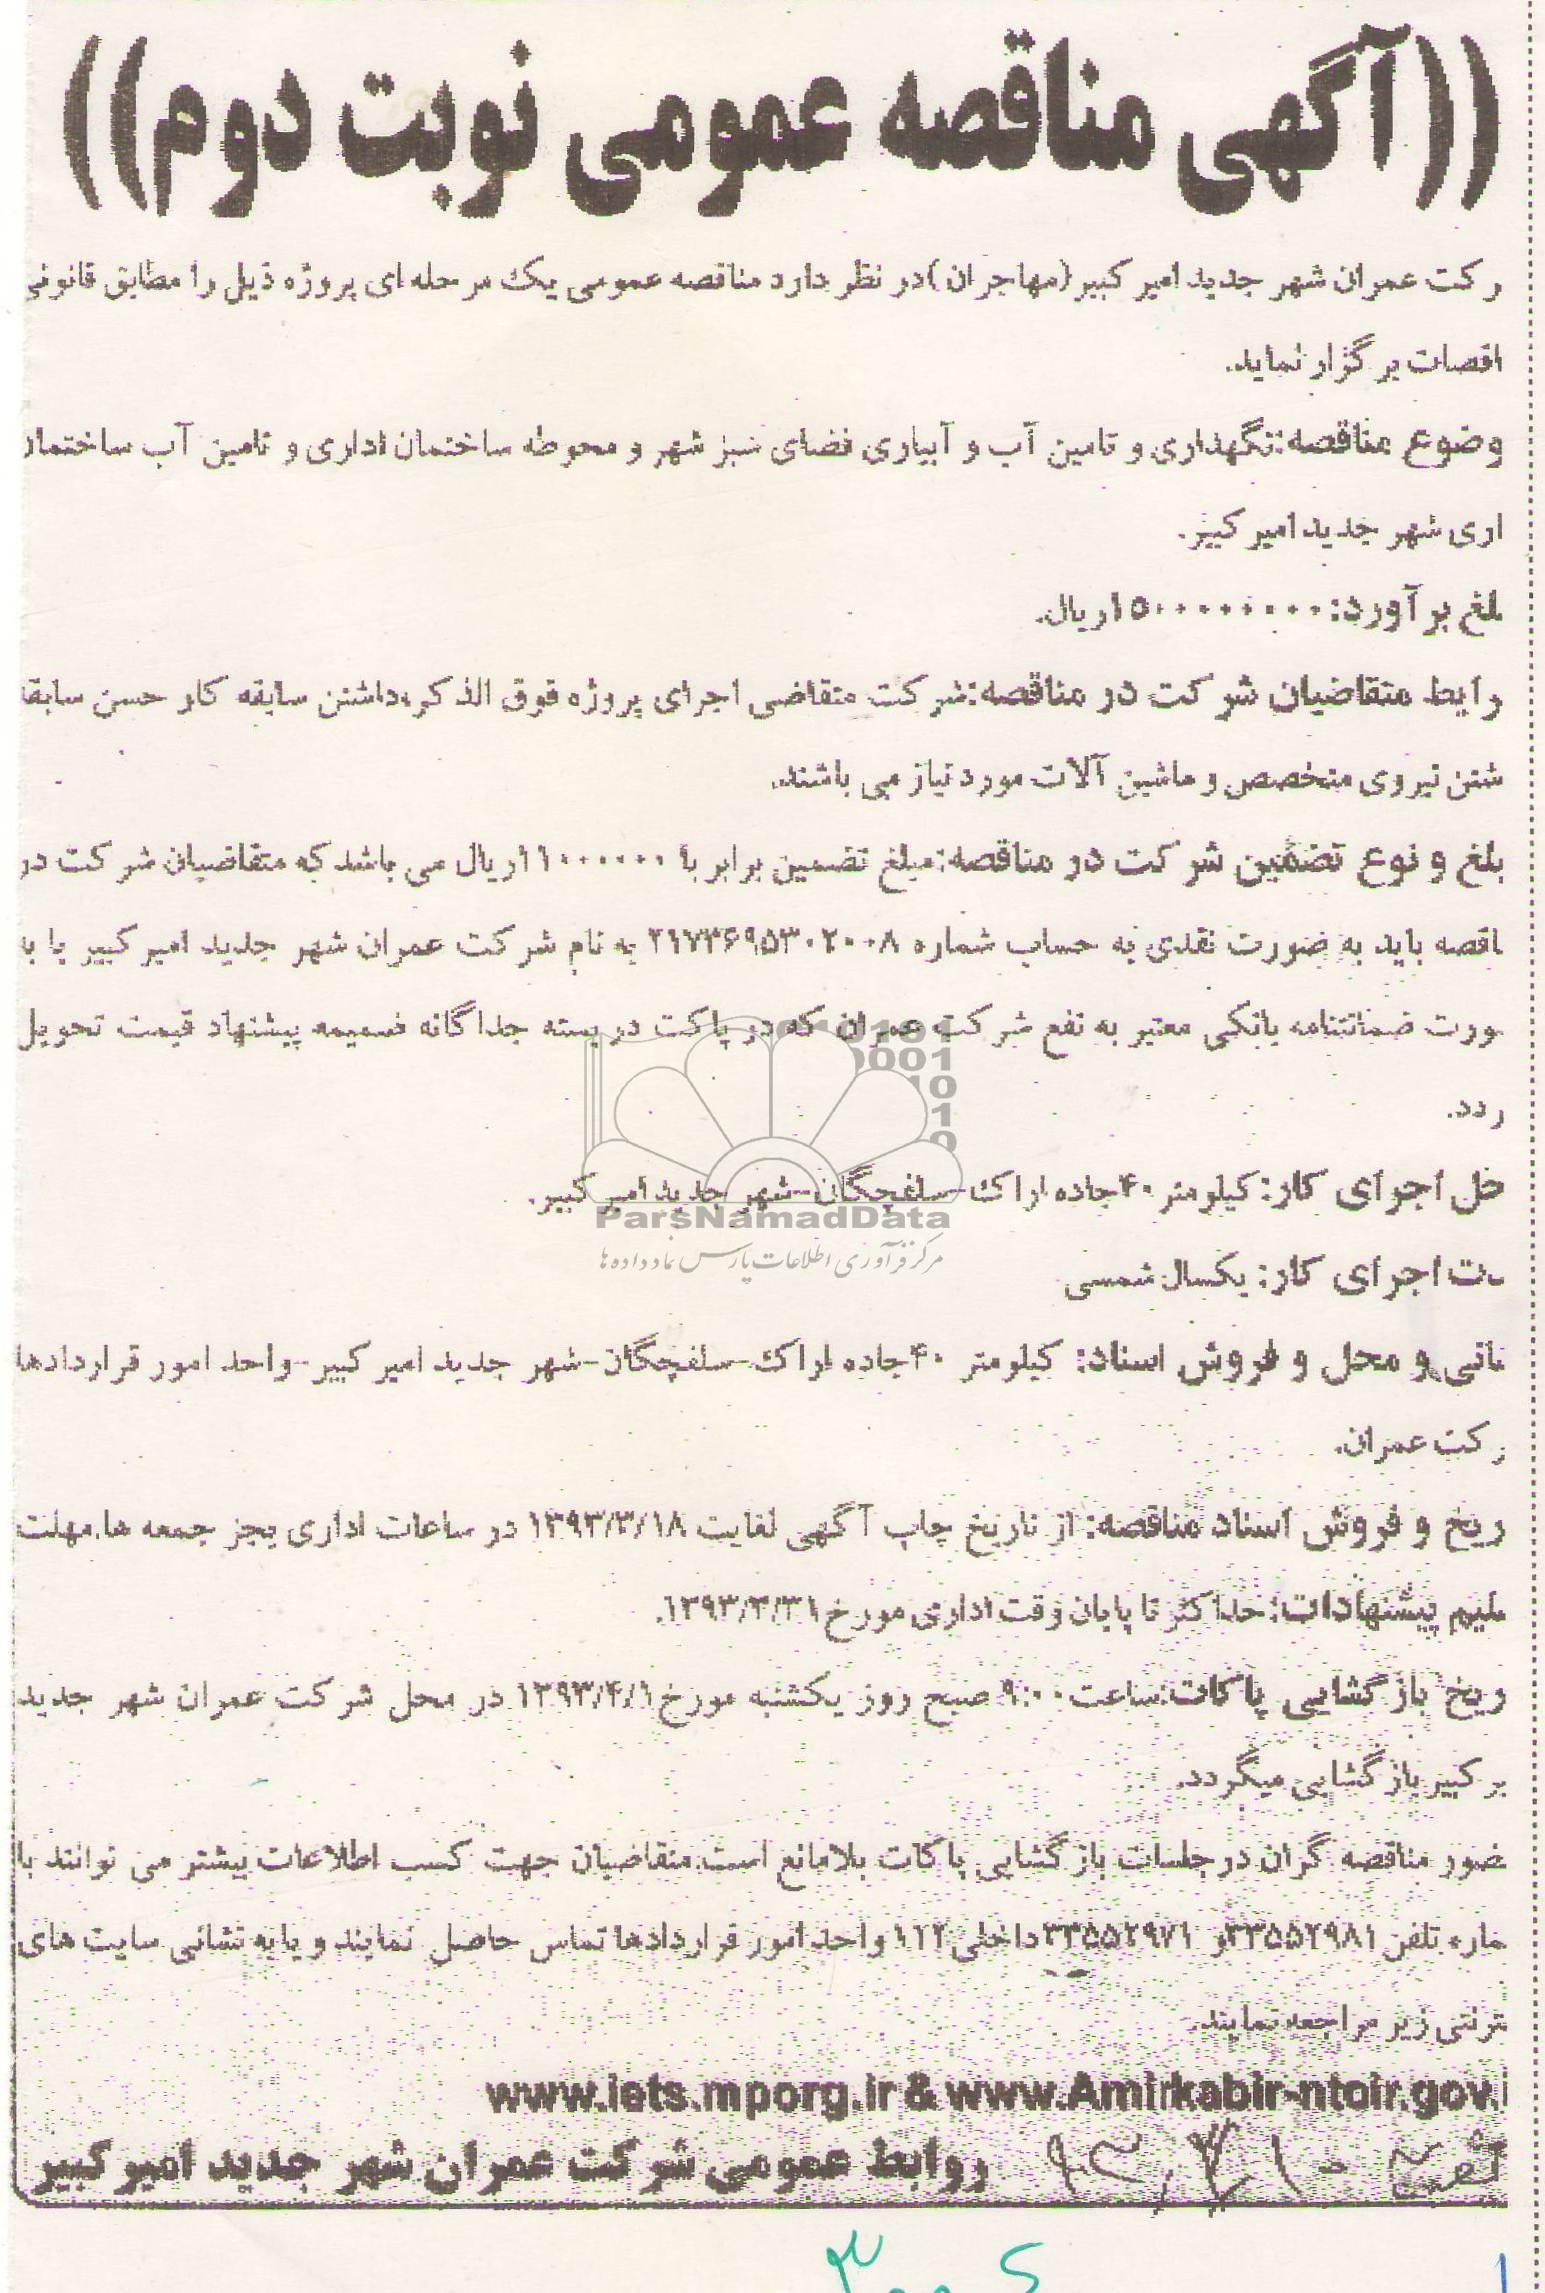 ((آگهی مناقصه عمومی نوبت دوم))
رکت عمران شهر جدید امیر کبیر(مهاجران)در نظر دارد مناقصه عمومی یک مرحله ای پروژه ذیل را مطابق قانونی
اقصات برگزار نماید.
وضوع مناقصه:نگهداری و تامین آب و آبیاری فضای سبز شهر و محوطه ساختمان اداری و تامین آب ساختمان
اری شهر جدید امیر کبیر.
بلغ برآورد:۱۵۰۰۰۰۰۰۰۰ریال.
رایط متقاضیان شرکت در مناقصه:شرکت متقاضی اجرای پروژه فوق الذکر،داشتن سابقه کار حسن سابقه
شتن نیروی متخصص و ماشین آلات مورد نیاز می باشند.
بلغ و نوع تضمین شرکت در مناقصه:مبلغ تضمین برابر با ۱۱۰۰۰۰۰۰ریال می باشد که متقاضیان شرکت در
اقصه باید به صورت نقدی به حساب شماره ۲۱۷۳۶۹۵۳۰۲۰۰۸ به نام شرکت عمران شهر جدید امیر کبیر یا با
ورت ضمانتنامه بانکی معتبر به نفع شرکت عمران که در پاکت در بسته جداگانه ضمیمه پیشنهاد قیمت تحویل
ردد.
حل اجرای کار: کیلومتر ۴۰جاده اراک-سلفچگان-شهر جدید امیر کبیر.
ParsNamadData
مرکز فرآوری اطلاعات پارس نماد داده ها
ت اجرای کار: یکسال شمسی
انی و محل و فروش اسناد: کیلومتر ۴۰جاده اراک-سلفچگان-شهر جدید امیر کبیر-واحد امور قراردادها
رکت عمران.
ریخ و فروش اسناد مناقصه: از تاریخ چاپ آگهی لغایت ۱۳۹۳/۳/۱۸ در ساعات اداری بجز جمعه ها.مهلت
سلیم پیشنهادات: حداکثر تا پایان وقت اداری مورخ ۱۳۹۳/۳/۳۱.
ریخ بازگشایی پاکات:ساعت ۹:۰۰ صبح روز یکشنبه مورخ ۱۳۹۳/۴/۱ در محل شرکت عمران شهر جدید
یر کبیر بازگشایی میگردد.
ضور مناقصه گران در جلسات بازگشایی پاکات بلامانع است.متقاضیان جهت کسب اطلاعات بیشتر می توانند با
ماره تلفن ۳۳۵۵۲۹۸۱و ۳۳۵۵۲۹۷۱داخلی ۱۱۲ واحد امور قراردادها تماس حاصل نمایند و یا به نشانی سایت های
ترنتی زیر مراجعه نمایند.
www.iets.mporg.ir & www.Amirkabir-ntoir.gov.i
روابط عمومی شرکت عمران شهر جدید امیر کبیر